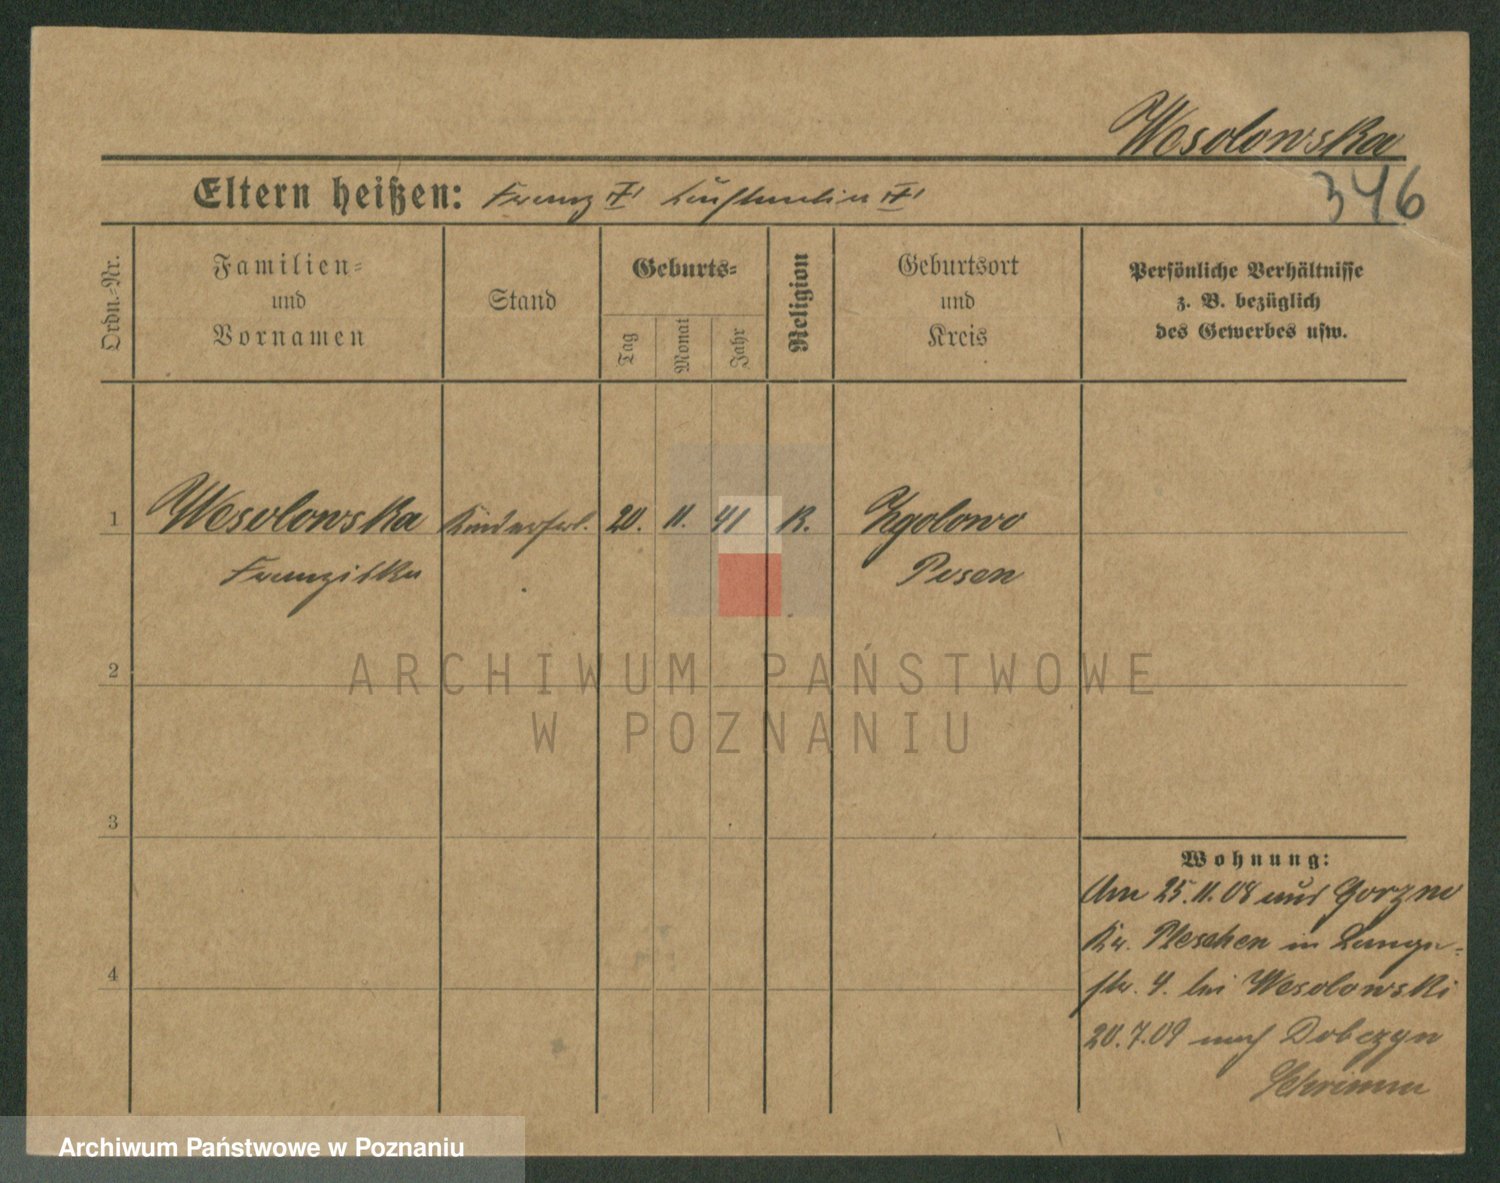 Wesolowska
346
Eltern heißen: Franz
Ordn.-Nr.
Familien-
und
Vornamen
Stand
Geburts-
Tag
Monat
Jahr
Religion
Geburtsort
und
Kreis
Persönliche Verhältnisse
z. B. bezüglich
des Gewerbes usw.
1 Wesolowska 20. 11. 41 K.
Franziska Posen
2
3
4
Wohnung:
Am 25.11.08 aus Gorzno
Kr. Pleschen in Lange-
str. 4. bei Wesolowski
20.7.09 nach
Schrimm
ARCHIWUM PAŃSTWOWE
W POZNANIU
Archiwum Państwowe w Poznaniu